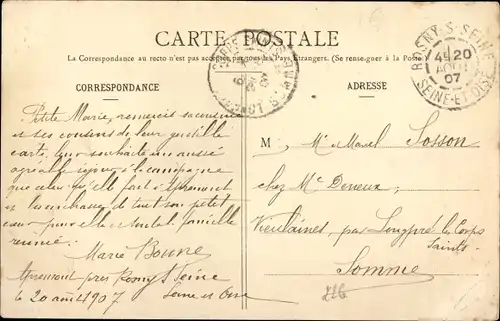 CARTE POSTALE
La Correspondance au recto n'est pas acceptée par tous les Pays Étrangers. (Se renseigner à la Poste)
CORRESPONDANCE
Petite Marie, remercie sa cousine
et ses cousins de leur gentille
carte, leur souhaite un aussi
agréable séjour à la campagne
que celui qu'elle fait à Apremont
et les embrasse de tout son petit
cœur pour elle et toute la famille
réunie.
Marie Bonne
Apremont près Rosny s Seine
le 20 août 1907 Seine et Oise
ADRESSE
M r Marcel Sosson
chez Mc Deneux
Vieulaines, par Longpré les Corps
Saints
Somme
ROSNY-S-SEINE
4 20
AOUT
07
SEINE-ET-OISE
LONGPRÉ